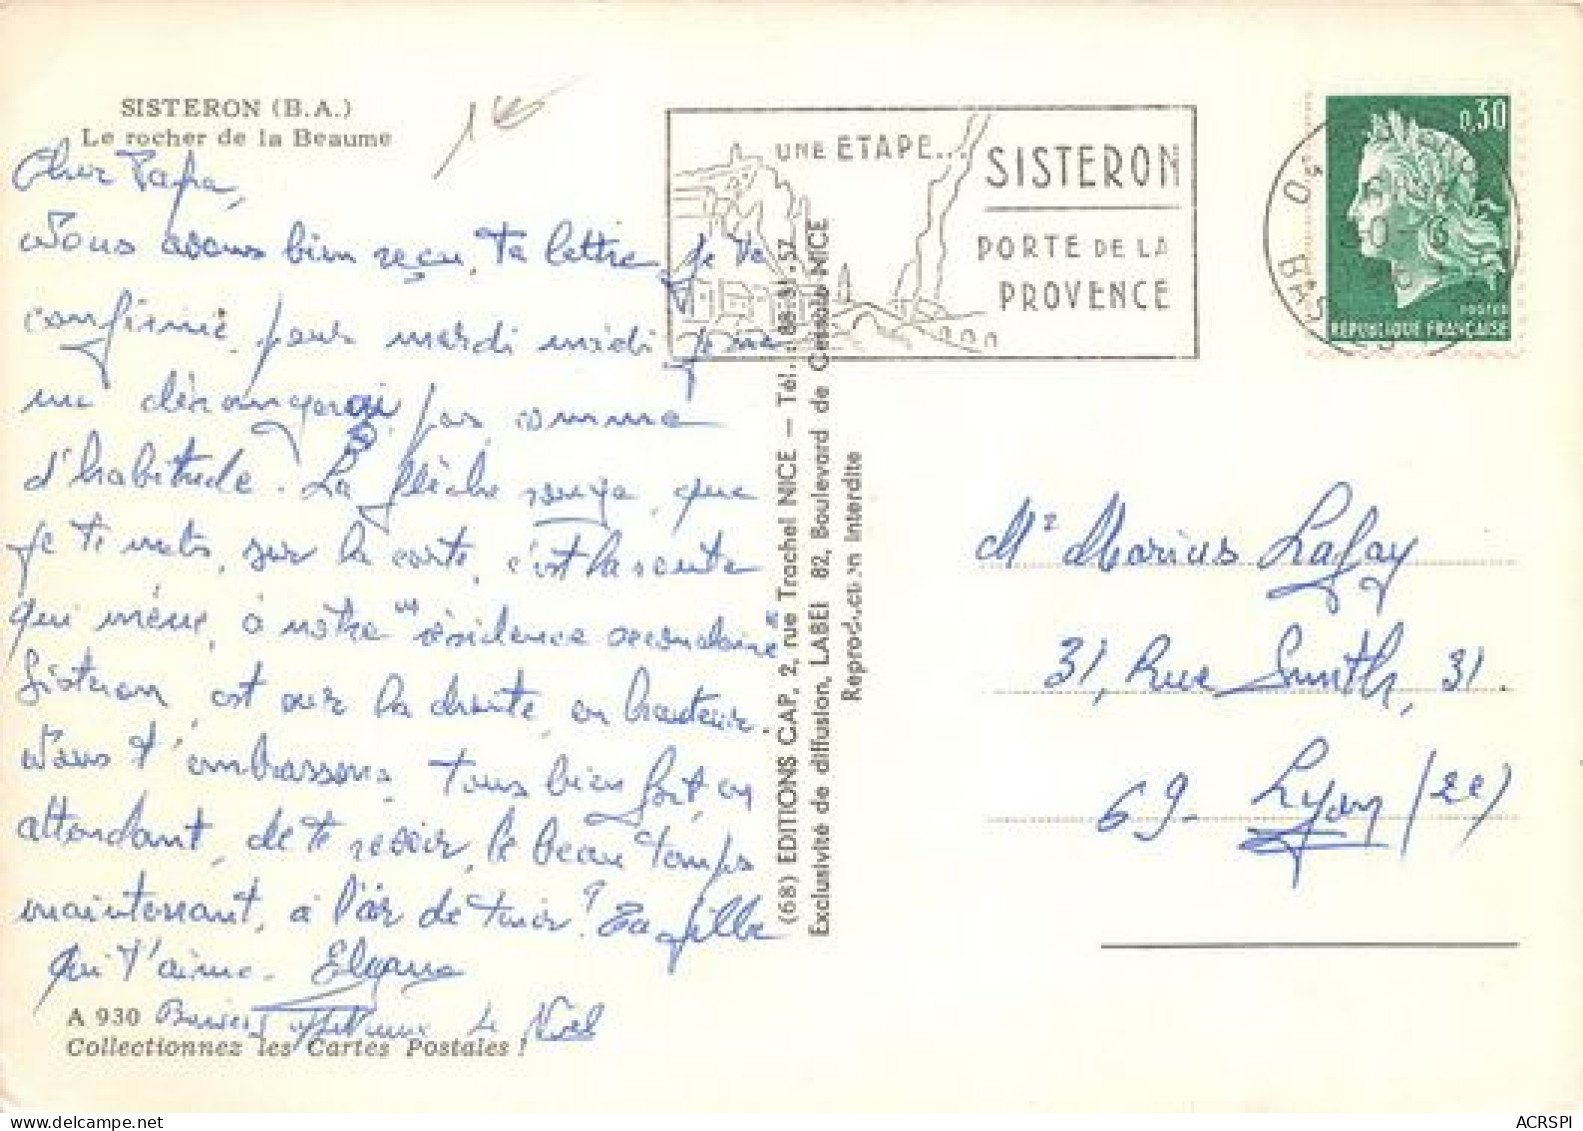 SISTERON (B.A.)
Le rocher de la Beaume
Cher Papa,
Nous avons bien reçu, ta lettre, je te
confirme, pour mardi midi je ne
me dérangerai pas, comme
d'habitude. La flèche rouge, que
je te mets, sur la carte, c'est la route
qui mène, à notre "résidence secondaire"
Sisteron, est sur la droite, en hauteur.
Nous t'embrassons, tous bien fort, en
attendant, de te revoir, le beau temps
maintenant, a l'air de tenir? Ta fille
qui t'aime.
A 930
Noël
Collectionnez les Cartes Postales !
(68) EDITIONS CAP, 2, rue Trachel NICE — Tél. : 88.31.57
Exclusivité de diffusion, LABEI 82, Boulevard de Cessole NICE
Reproduction Interdite
UNE ETAPE...
SISTERON
PORTE DE LA
PROVENCE
0,30
POSTES
RÉPUBLIQUE FRANÇAISE
Mr Marius Lafay
31, Rue Smith, 31.
69- Lyon (2e)
ACRSPI